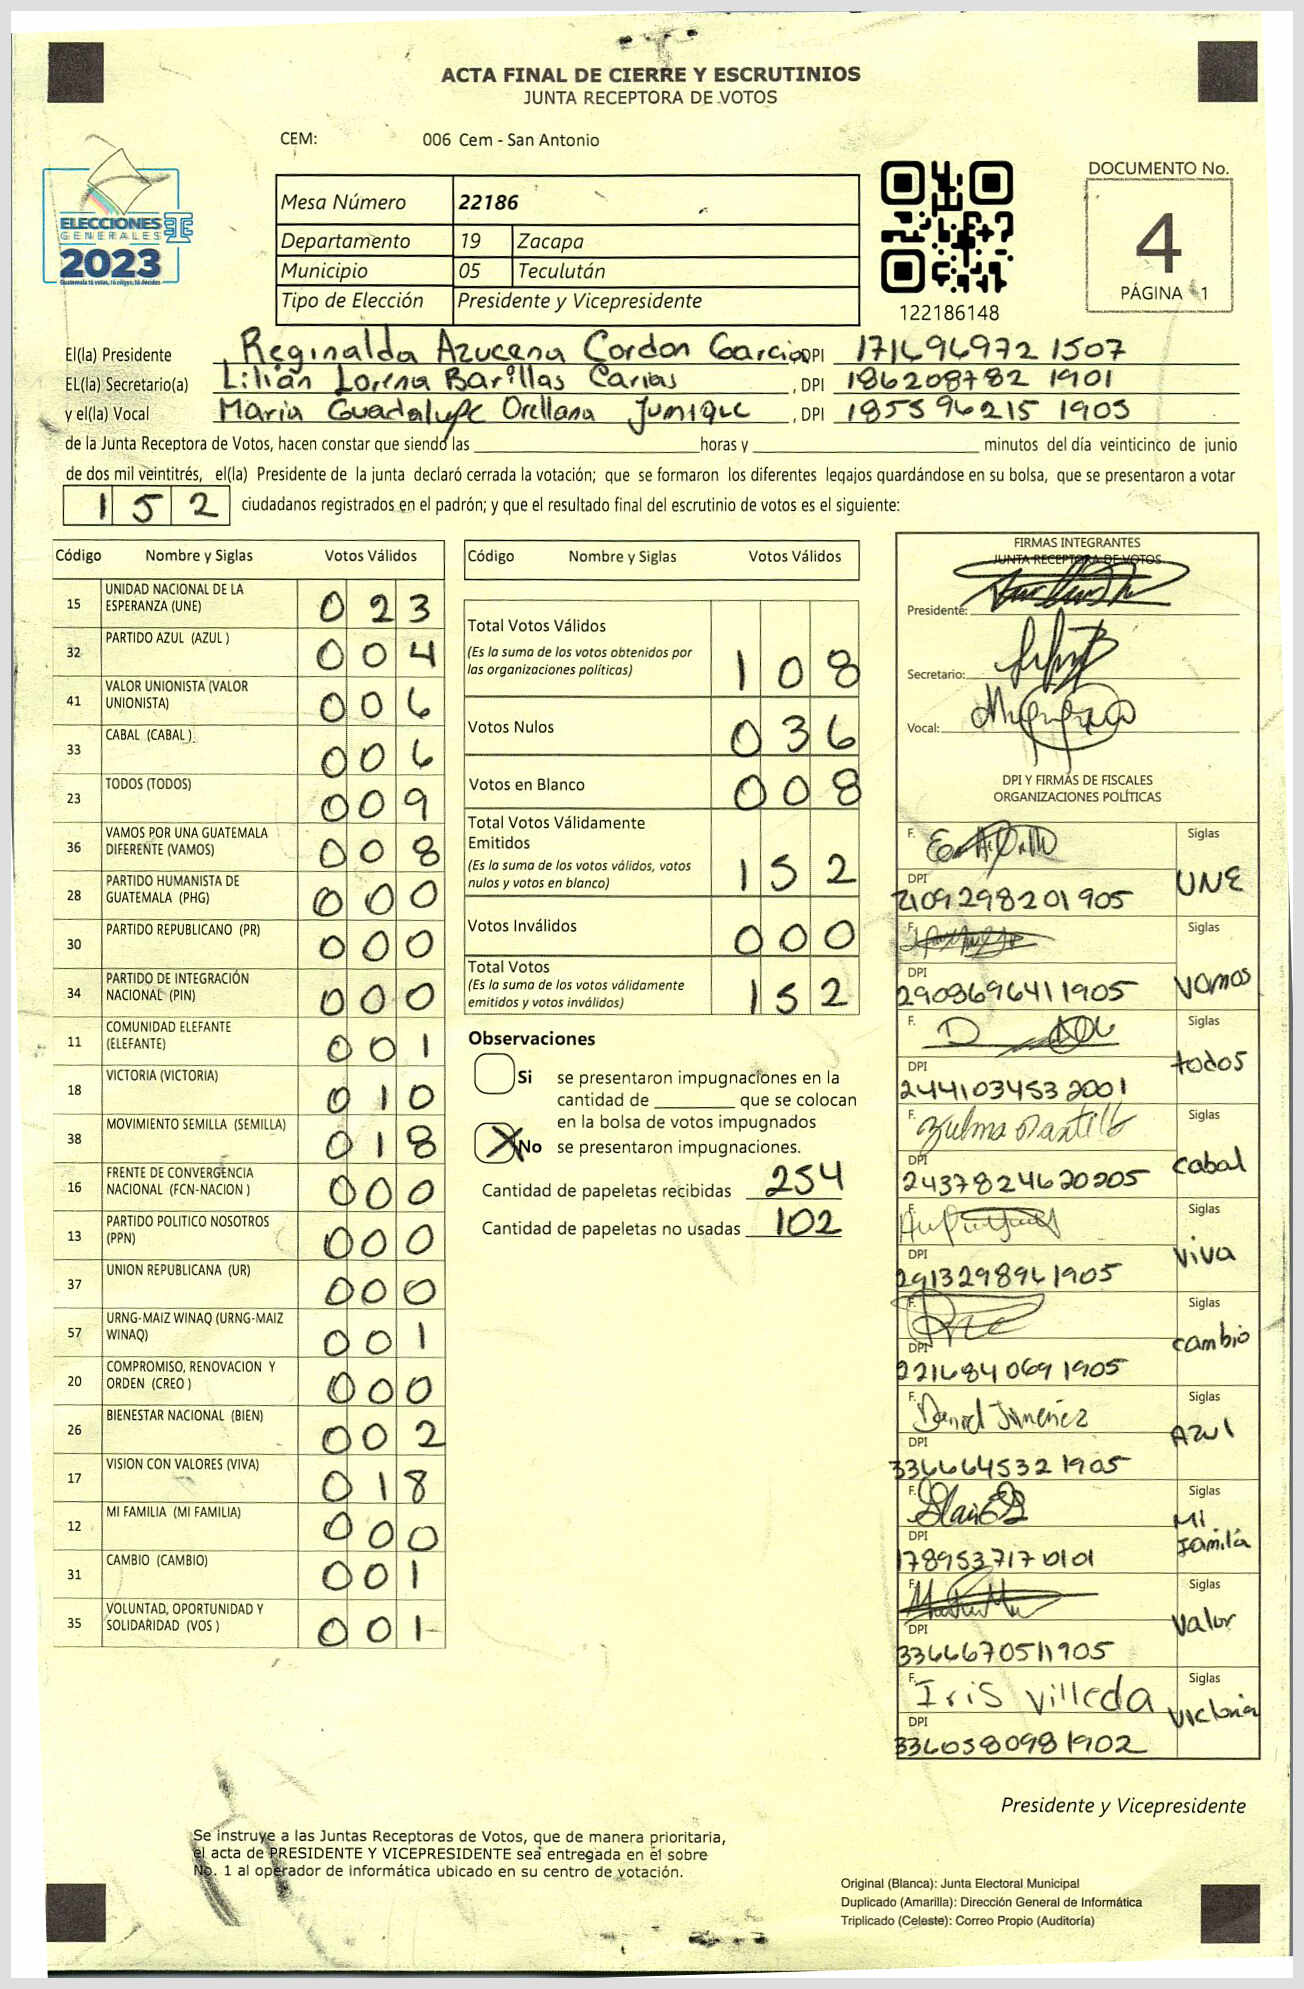 ACTA FINAL DE CIERRE Y ESCRUTINIOS
JUNTA RECEPTORA DE VOTOS
CEM: 006 Cem - San Antonio
ELECCIONES
GENERALES
2023
Guatemala tú votas, tú eliges, tú decides
Mesa Número 22186
Departamento 19 Zacapa
Municipio 05 Teculután
Tipo de Elección Presidente y Vicepresidente
122186148
DOCUMENTO No.
4
PÁGINA 1
El(la) Presidente Reginalda Azucena Cordon Garcia, DPI 171696972 1507
EL(la) Secretario(a) Lilian Lorena Barillas Carias, DPI 186208782 1901
y el(la) Vocal Maria Guadalupe Orellana Junique, DPI 185596215 1905
de la Junta Receptora de Votos, hacen constar que siendo las horas y minutos del día veinticinco de junio
de dos mil veintitrés, el(la) Presidente de la junta declaró cerrada la votación; que se formaron los diferentes legajos guardándose en su bolsa, que se presentaron a votar
152 ciudadanos registrados en el padrón; y que el resultado final del escrutinio de votos es el siguiente:
Código Nombre y Siglas Votos Válidos
15 UNIDAD NACIONAL DE LA ESPERANZA (UNE) 023
32 PARTIDO AZUL (AZUL ) 004
41 VALOR UNIONISTA (VALOR UNIONISTA) 006
33 CABAL (CABAL ) 006
23 TODOS (TODOS) 009
36 VAMOS POR UNA GUATEMALA DIFERENTE (VAMOS) 008
28 PARTIDO HUMANISTA DE GUATEMALA (PHG) 000
30 PARTIDO REPUBLICANO (PR) 000
34 PARTIDO DE INTEGRACIÓN NACIONAL (PIN) 000
11 COMUNIDAD ELEFANTE (ELEFANTE) 001
18 VICTORIA (VICTORIA) 010
38 MOVIMIENTO SEMILLA (SEMILLA) 018
16 FRENTE DE CONVERGENCIA NACIONAL (FCN-NACION ) 000
13 PARTIDO POLITICO NOSOTROS (PPN) 000
37 UNION REPUBLICANA (UR) 000
57 URNG-MAIZ WINAQ (URNG-MAIZ WINAQ) 001
20 COMPROMISO, RENOVACION Y ORDEN (CREO ) 000
26 BIENESTAR NACIONAL (BIEN) 002
17 VISION CON VALORES (VIVA) 018
12 MI FAMILIA (MI FAMILIA) 000
31 CAMBIO (CAMBIO) 001
35 VOLUNTAD, OPORTUNIDAD Y SOLIDARIDAD (VOS ) 001
Código Nombre y Siglas Votos Válidos
Total Votos Válidos 108
(Es la suma de los votos obtenidos por
las organizaciones políticas)
Votos Nulos 036
Votos en Blanco 008
Total Votos Válidamente
Emitidos 152
(Es la suma de los votos válidos, votos
nulos y votos en blanco)
Votos Inválidos 000
Total Votos 152
(Es la suma de los votos válidamente
emitidos y votos inválidos)
Observaciones
Si se presentaron impugnaciones en la
cantidad de que se colocan
en la bolsa de votos impugnados
X No se presentaron impugnaciones.
Cantidad de papeletas recibidas 254
Cantidad de papeletas no usadas 102
FIRMAS INTEGRANTES
JUNTA RECEPTORA DE VOTOS
Presidente:
Secretario:
Vocal:
DPI Y FIRMAS DE FISCALES
ORGANIZACIONES POLÍTICAS
F. Siglas
DPI UNE
2109298201905
F. Siglas
DPI Vamos
2908696411905
F. Siglas
DPI todos
244103453 2001
F. Zulma Siglas
DPI cabal
2437824620205
F. Siglas
DPI viva
2913298961905
F. Siglas
DPI cambio
221684069 1905
F. Daniel Jimenez Siglas
DPI Azul
336664532 1905
F. Siglas
DPI Mi familia
178953717 0101
F. Siglas
DPI Valor
3366670511905
F. Iris Villeda Siglas
DPI Victoria
336058098 1902
Presidente y Vicepresidente
Se instruye a las Juntas Receptoras de Votos, que de manera prioritaria,
el acta de PRESIDENTE Y VICEPRESIDENTE sea entregada en el sobre
No. 1 al operador de informática ubicado en su centro de votación.
Original (Blanca): Junta Electoral Municipal
Duplicado (Amarilla): Dirección General de Informática
Triplicado (Celeste): Correo Propio (Auditoría)